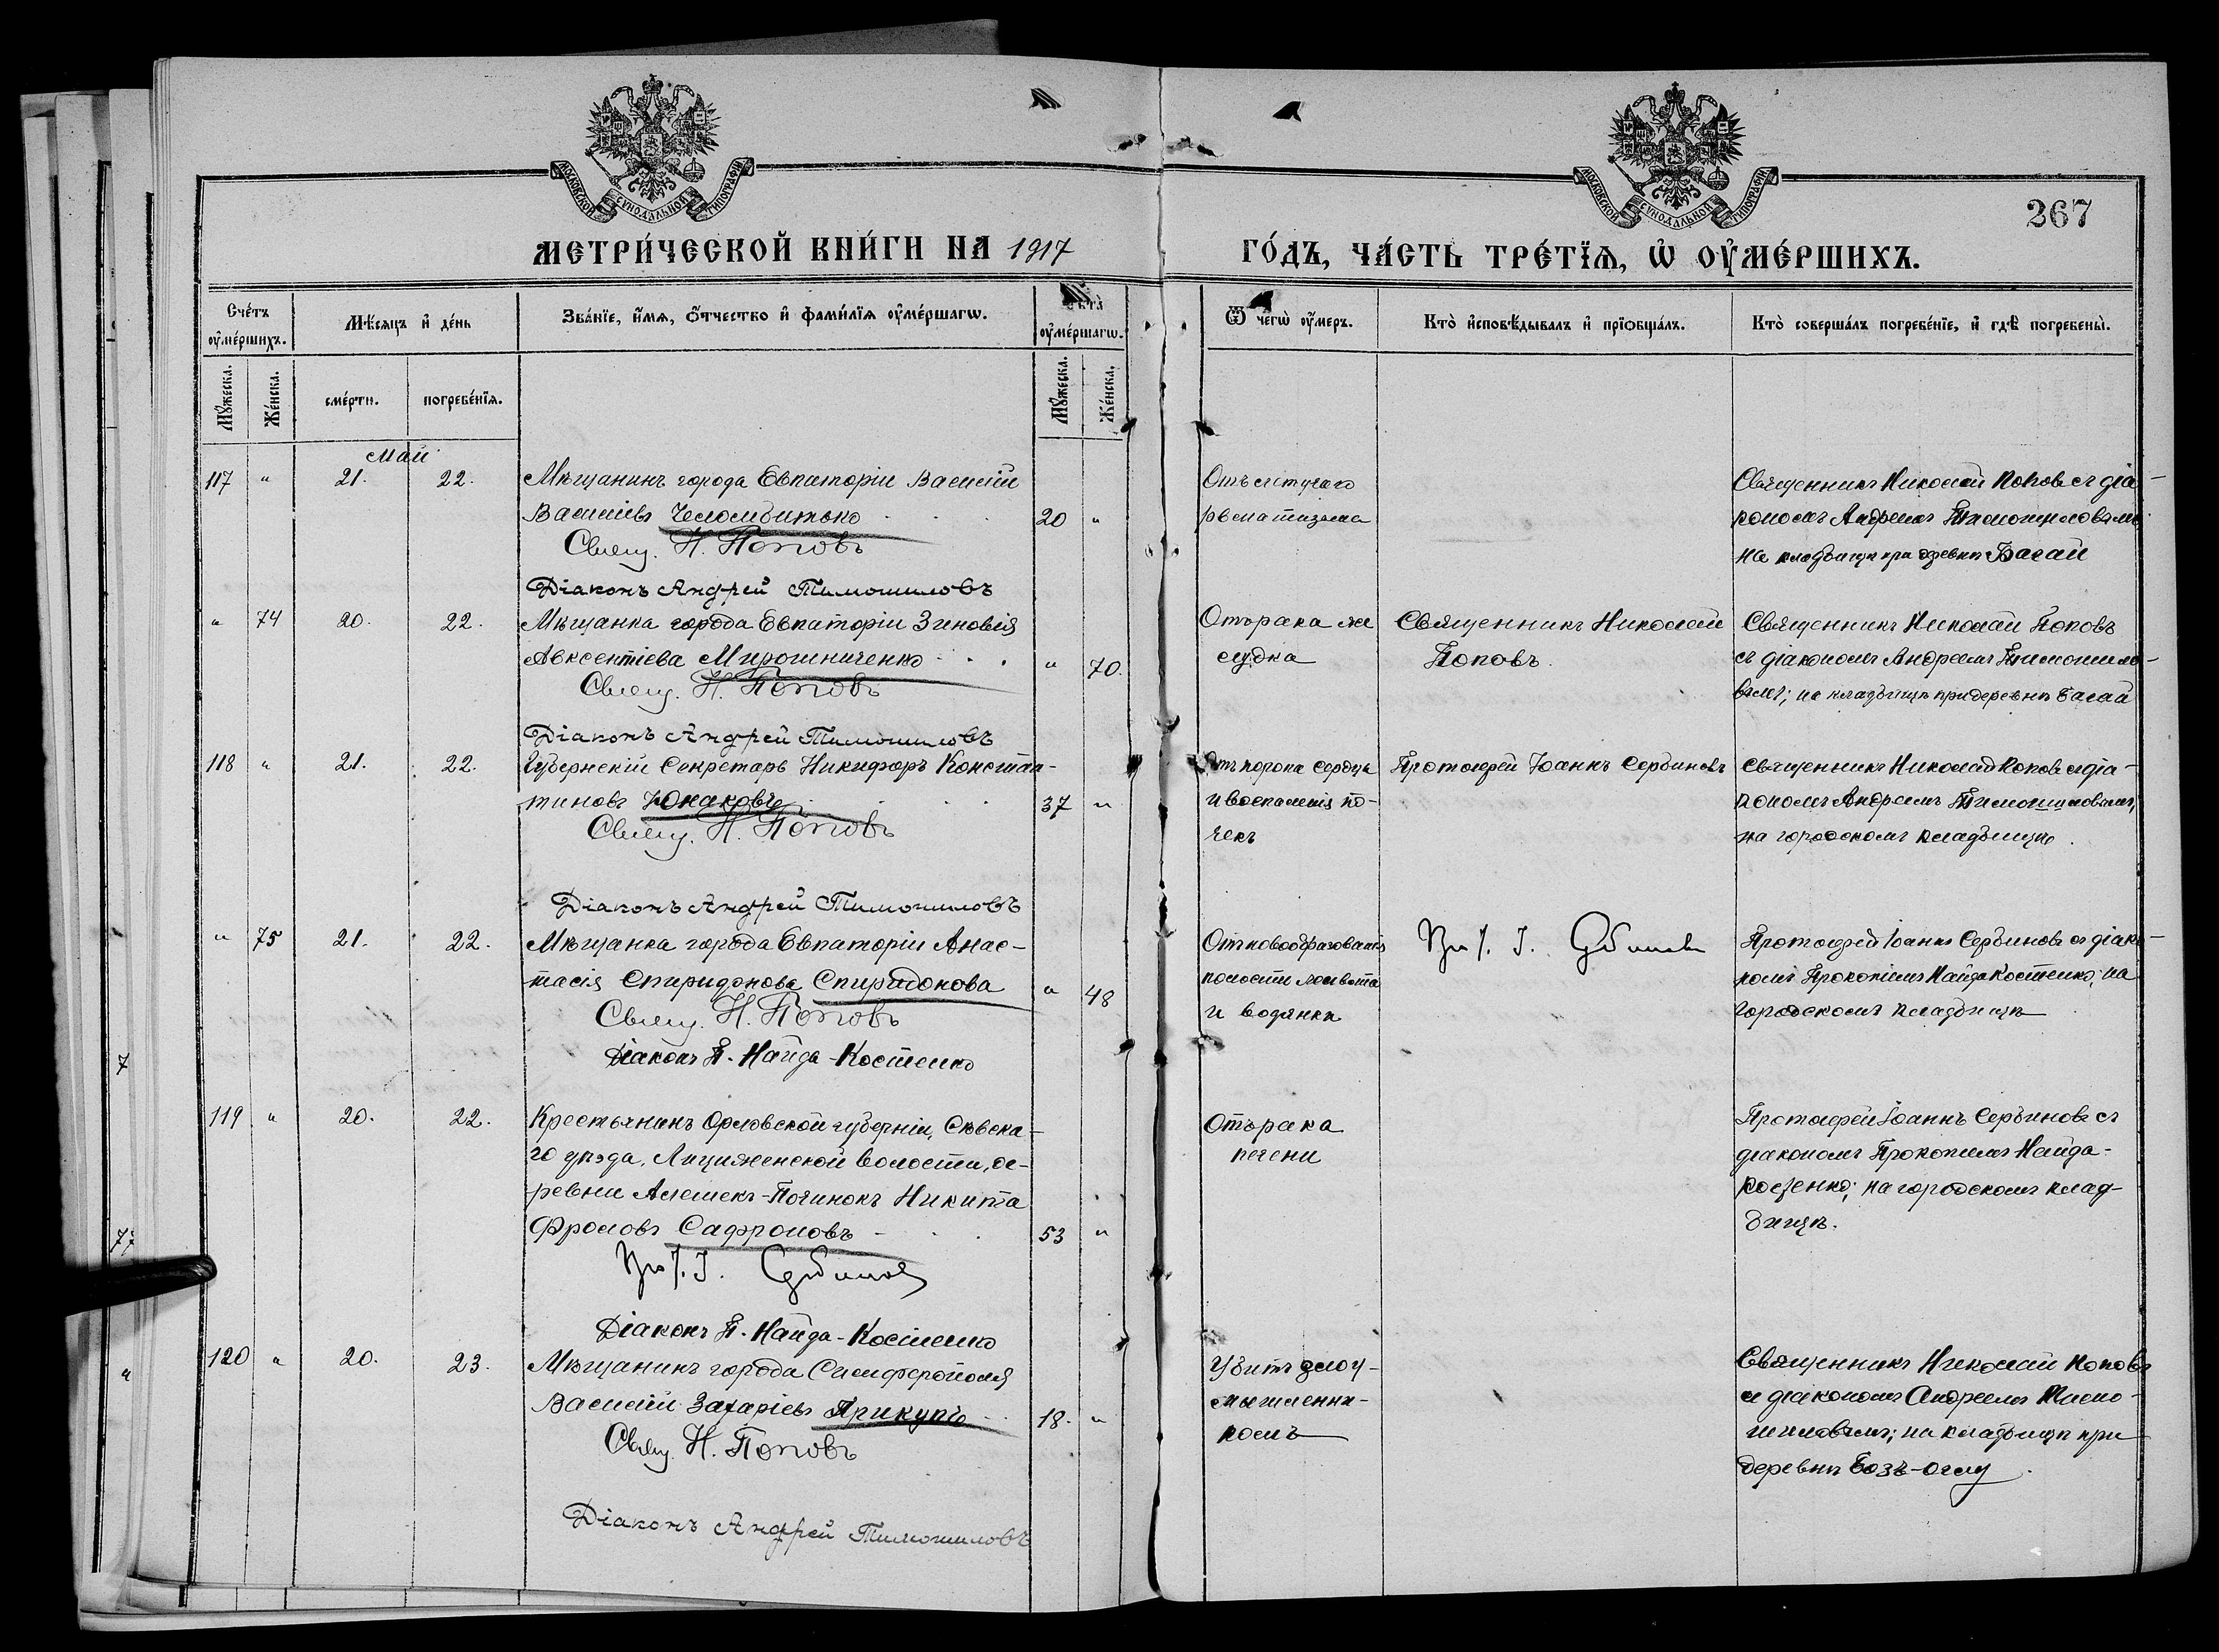 МОСКОВСКОЙ СУНОДАЛЬНОЙ ТИПОГРАФІИ
МОСКОВСКОЙ СУНОДАЛЬНОЙ ТИПОГРАФІИ
267
МЕТРИ́ЧЕСКОЙ КНИ́ГИ НА 1917
ГО́ДЪ, ЧА́СТЬ ТРЕ́ТЇѦ, Ѡ҆ ОУ҆МЕ́РШИХЪ.
Сче́тъ оу҆ме́ршихъ.
Мѣ́сяцъ и҆ де́нь
Зва́нїе, и҆́мѧ, ѻ҆́тчество и҆ фами́лїѧ оу҆ме́ршагѡ.
Лѣта̀ оу҆ме́ршагѡ.
Ѿ чегѡ̀ оу҆́меръ.
Кто̀ и҆сповѣ́дывалъ и҆ прїѻбща́лъ.
Кто̀ соверша́лъ погребе́нїе, и҆ гдѣ̀ погребены̀.
Мꙋ́жеска.
Же́нска.
сме́рти.
погребе́нїѧ.
Мꙋ́жеска.
Же́нска.
Май
117 " 21. 22. Мѣщанинъ города Евпаторіи Василій
Васильевъ Челомбитько 20 "
Свящ. Н. Поповъ
Діаконъ Андрей Тимошиловъ
Отъ
ревматизма
Священникъ Николай Поповъ съ діа-
кономъ Андреемъ Тимошиловымъ
на кладбищѣ при деревнѣ Багай
" 74 20. 22. Мѣщанка города Евпаторіи Зиновія
Авксентіева Мирошниченко " 70.
Свящ. Н. Поповъ
Діаконъ Андрей Тимошиловъ
Отъ рака же
лудка
Священникъ Николай
Поповъ.
Священникъ Николай Поповъ
съ діакономъ Андреемъ Тимошило-
вымъ; на кладбищѣ при деревнѣ Багай
118 " 21. 22. Губернскій Секретарь Никифоръ Констан-
тиновъ Юнаковъ 37 "
Свящ. Н. Поповъ
Діаконъ Андрей Тимошиловъ
Отъ порока сердца
и воспаленія по-
чекъ
Протоіерей Іоаннъ Сербиновъ
Священникъ Николай Поповъ съ діа-
кономъ Андреемъ Тимошиловымъ,
на городскомъ кладбищѣ.
" 75 21. 22. Мѣщанка города Евпаторіи Анас-
тасія Спиридонова Спиридонова " 48
Свящ. Н. Поповъ
Діаконъ П. Найда-Костенко
Отъ новообразованія
полости живота
и водянки
Прот. І. Сербиновъ
Протоіерей Іоаннъ Сербиновъ съ діако-
номъ Прокопіемъ Найда Костенко; на
городскомъ кладбищѣ
119 " 20. 22. Крестьянинъ Орловской губерніи, Сѣвска-
го уѣзда, волости, де-
ревни Алешекъ-Починокъ Никита
Фроловъ Сафроновъ 53 "
Прот. І. Сербиновъ
Діаконъ П. Найда-Костенко
Отъ рака
печени
Протоіерей Іоаннъ Сербиновъ съ
діакономъ Прокопіемъ Найда-
Костенко; на городскомъ клад-
бищѣ.
120 " 20. 23. Мѣщанинъ города Симферополя
Василій Захаріевъ Прикупъ 18. "
Свящ. Н. Поповъ
Діаконъ Андрей Тимошиловъ
Убитъ злоу-
мышленни-
комъ
Священникъ Николай Поповъ
съ діакономъ Андреемъ Тимо-
шиловымъ; на кладбищѣ при
деревнѣ Бозъ-Оглу.
7
77
"